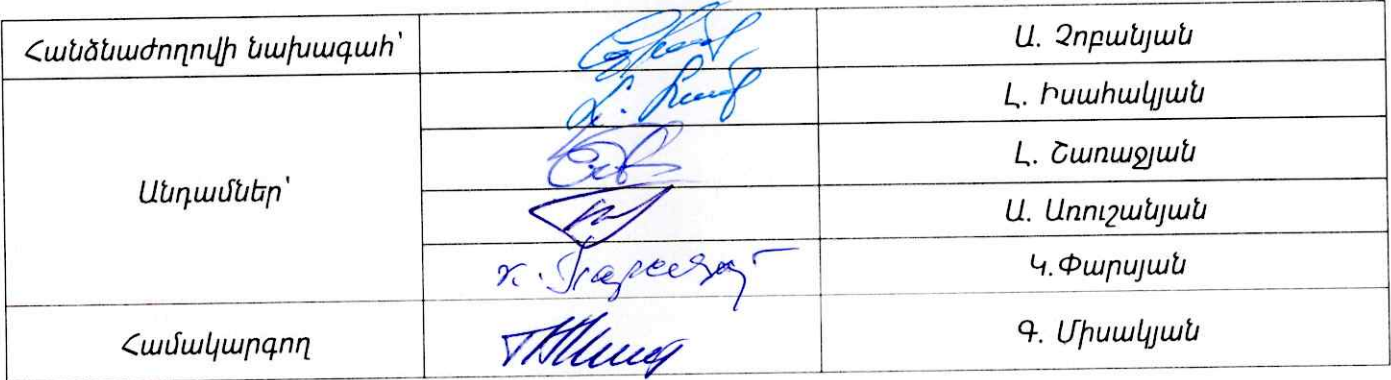 Հանձնաժողովի նախագահ՝
Ա. Չոբանյան
Լ. Իսահակյան
Լ. Շառաջյան
Անդամներ՝
Ա. Առուշանյան
Կ.Փարսյան
Համակարգող
Գ. Միսակյան